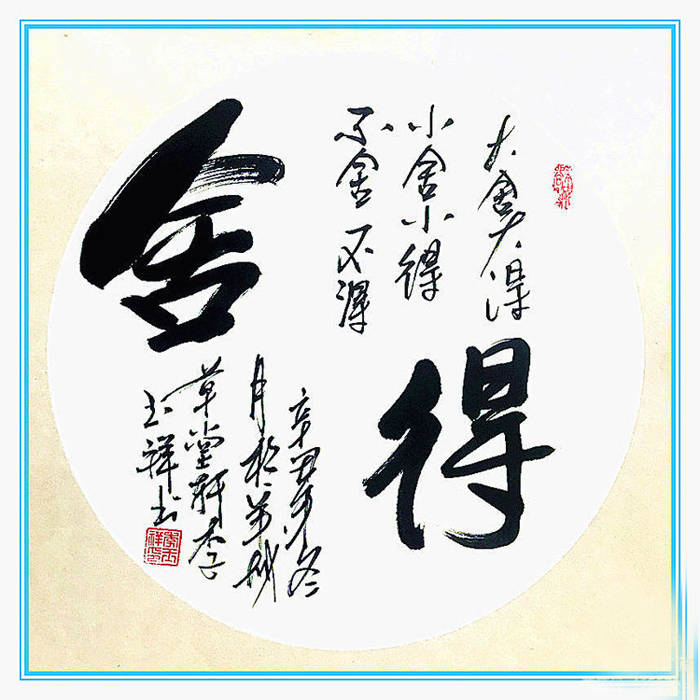 舍
得
大舍大得
小舍小得
不舍不得
辛丑岁冬
月於羊城
草堂轩李
玉祥书